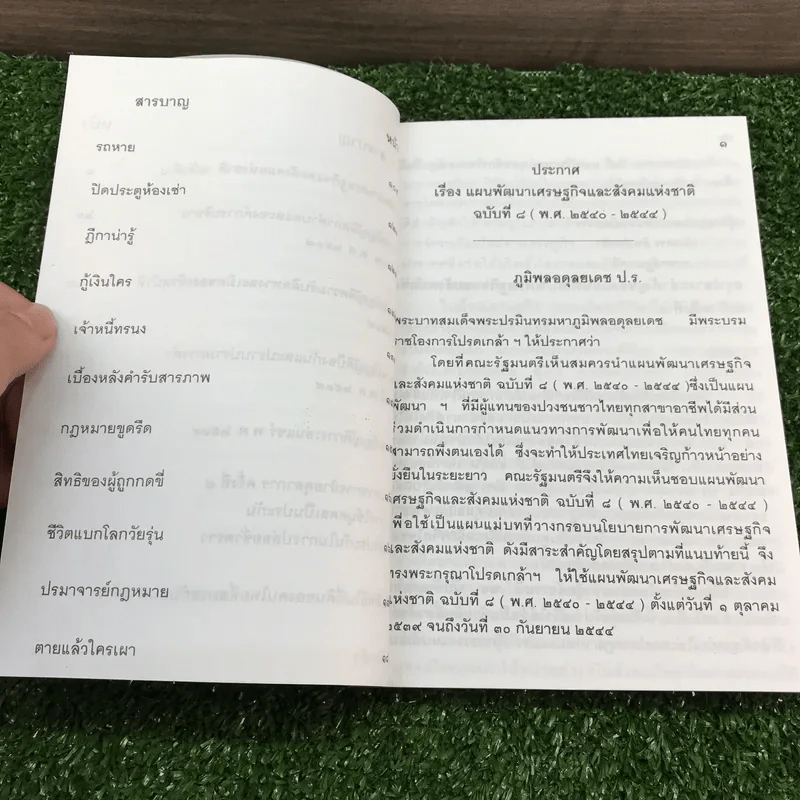 สารบาญ
รถหาย
ปิดประตูห้องเช่า
ฎีกาน่ารู้
กู้เงินใคร
เจ้าหนี้ทรนง
เบื้องหลังคำรับสารภาพ
กฎหมายขูดรีด
สิทธิของผู้ถูกกดขี่
ชีวิตแบกโลกวัยรุ่น
ปรมาจารย์กฎหมาย
ตายแล้วใครเผา
๑
ประกาศ
เรื่อง แผนพัฒนาเศรษฐกิจและสังคมแห่งชาติ
ฉบับที่ ๘ ( พ.ศ. ๒๕๔๐ - ๒๕๔๔ )
ภูมิพลอดุลยเดช ป.ร.
พระบาทสมเด็จพระปรมินทรมหาภูมิพลอดุลยเดช มีพระบรม
ราชโองการโปรดเกล้า ฯ ให้ประกาศว่า
โดยที่คณะรัฐมนตรีเห็นสมควรนำแผนพัฒนาเศรษฐกิจ
และสังคมแห่งชาติ ฉบับที่ ๘ ( พ.ศ. ๒๕๔๐ - ๒๕๔๔ )ซึ่งเป็นแผน
พัฒนา ฯ ที่มีผู้แทนของปวงชนชาวไทยทุกสาขาอาชีพได้มีส่วน
ร่วมดำเนินการกำหนดแนวทางการพัฒนาเพื่อให้คนไทยทุกคน
สามารถพึ่งตนเองได้ ซึ่งจะทำให้ประเทศไทยเจริญก้าวหน้าอย่าง
ยั่งยืนในระยะยาว คณะรัฐมนตรีจึงให้ความเห็นชอบแผนพัฒนา
เศรษฐกิจและสังคมแห่งชาติ ฉบับที่ ๘ ( พ.ศ. ๒๕๔๐ - ๒๕๔๔ )
เพื่อใช้เป็นแผนแม่บทที่วางกรอบนโยบายการพัฒนาเศรษฐกิจ
และสังคมแห่งชาติ ดังมีสาระสำคัญโดยสรุปตามที่แนบท้ายนี้ จึง
ทรงพระกรุณาโปรดเกล้าฯ ให้ใช้แผนพัฒนาเศรษฐกิจและสังคม
แห่งชาติ ฉบับที่ ๘ ( พ.ศ. ๒๕๔๐ - ๒๕๔๔ ) ตั้งแต่วันที่ ๑ ตุลาคม
๒๕๓๙ จนถึงวันที่ ๓๐ กันยายน ๒๕๔๔